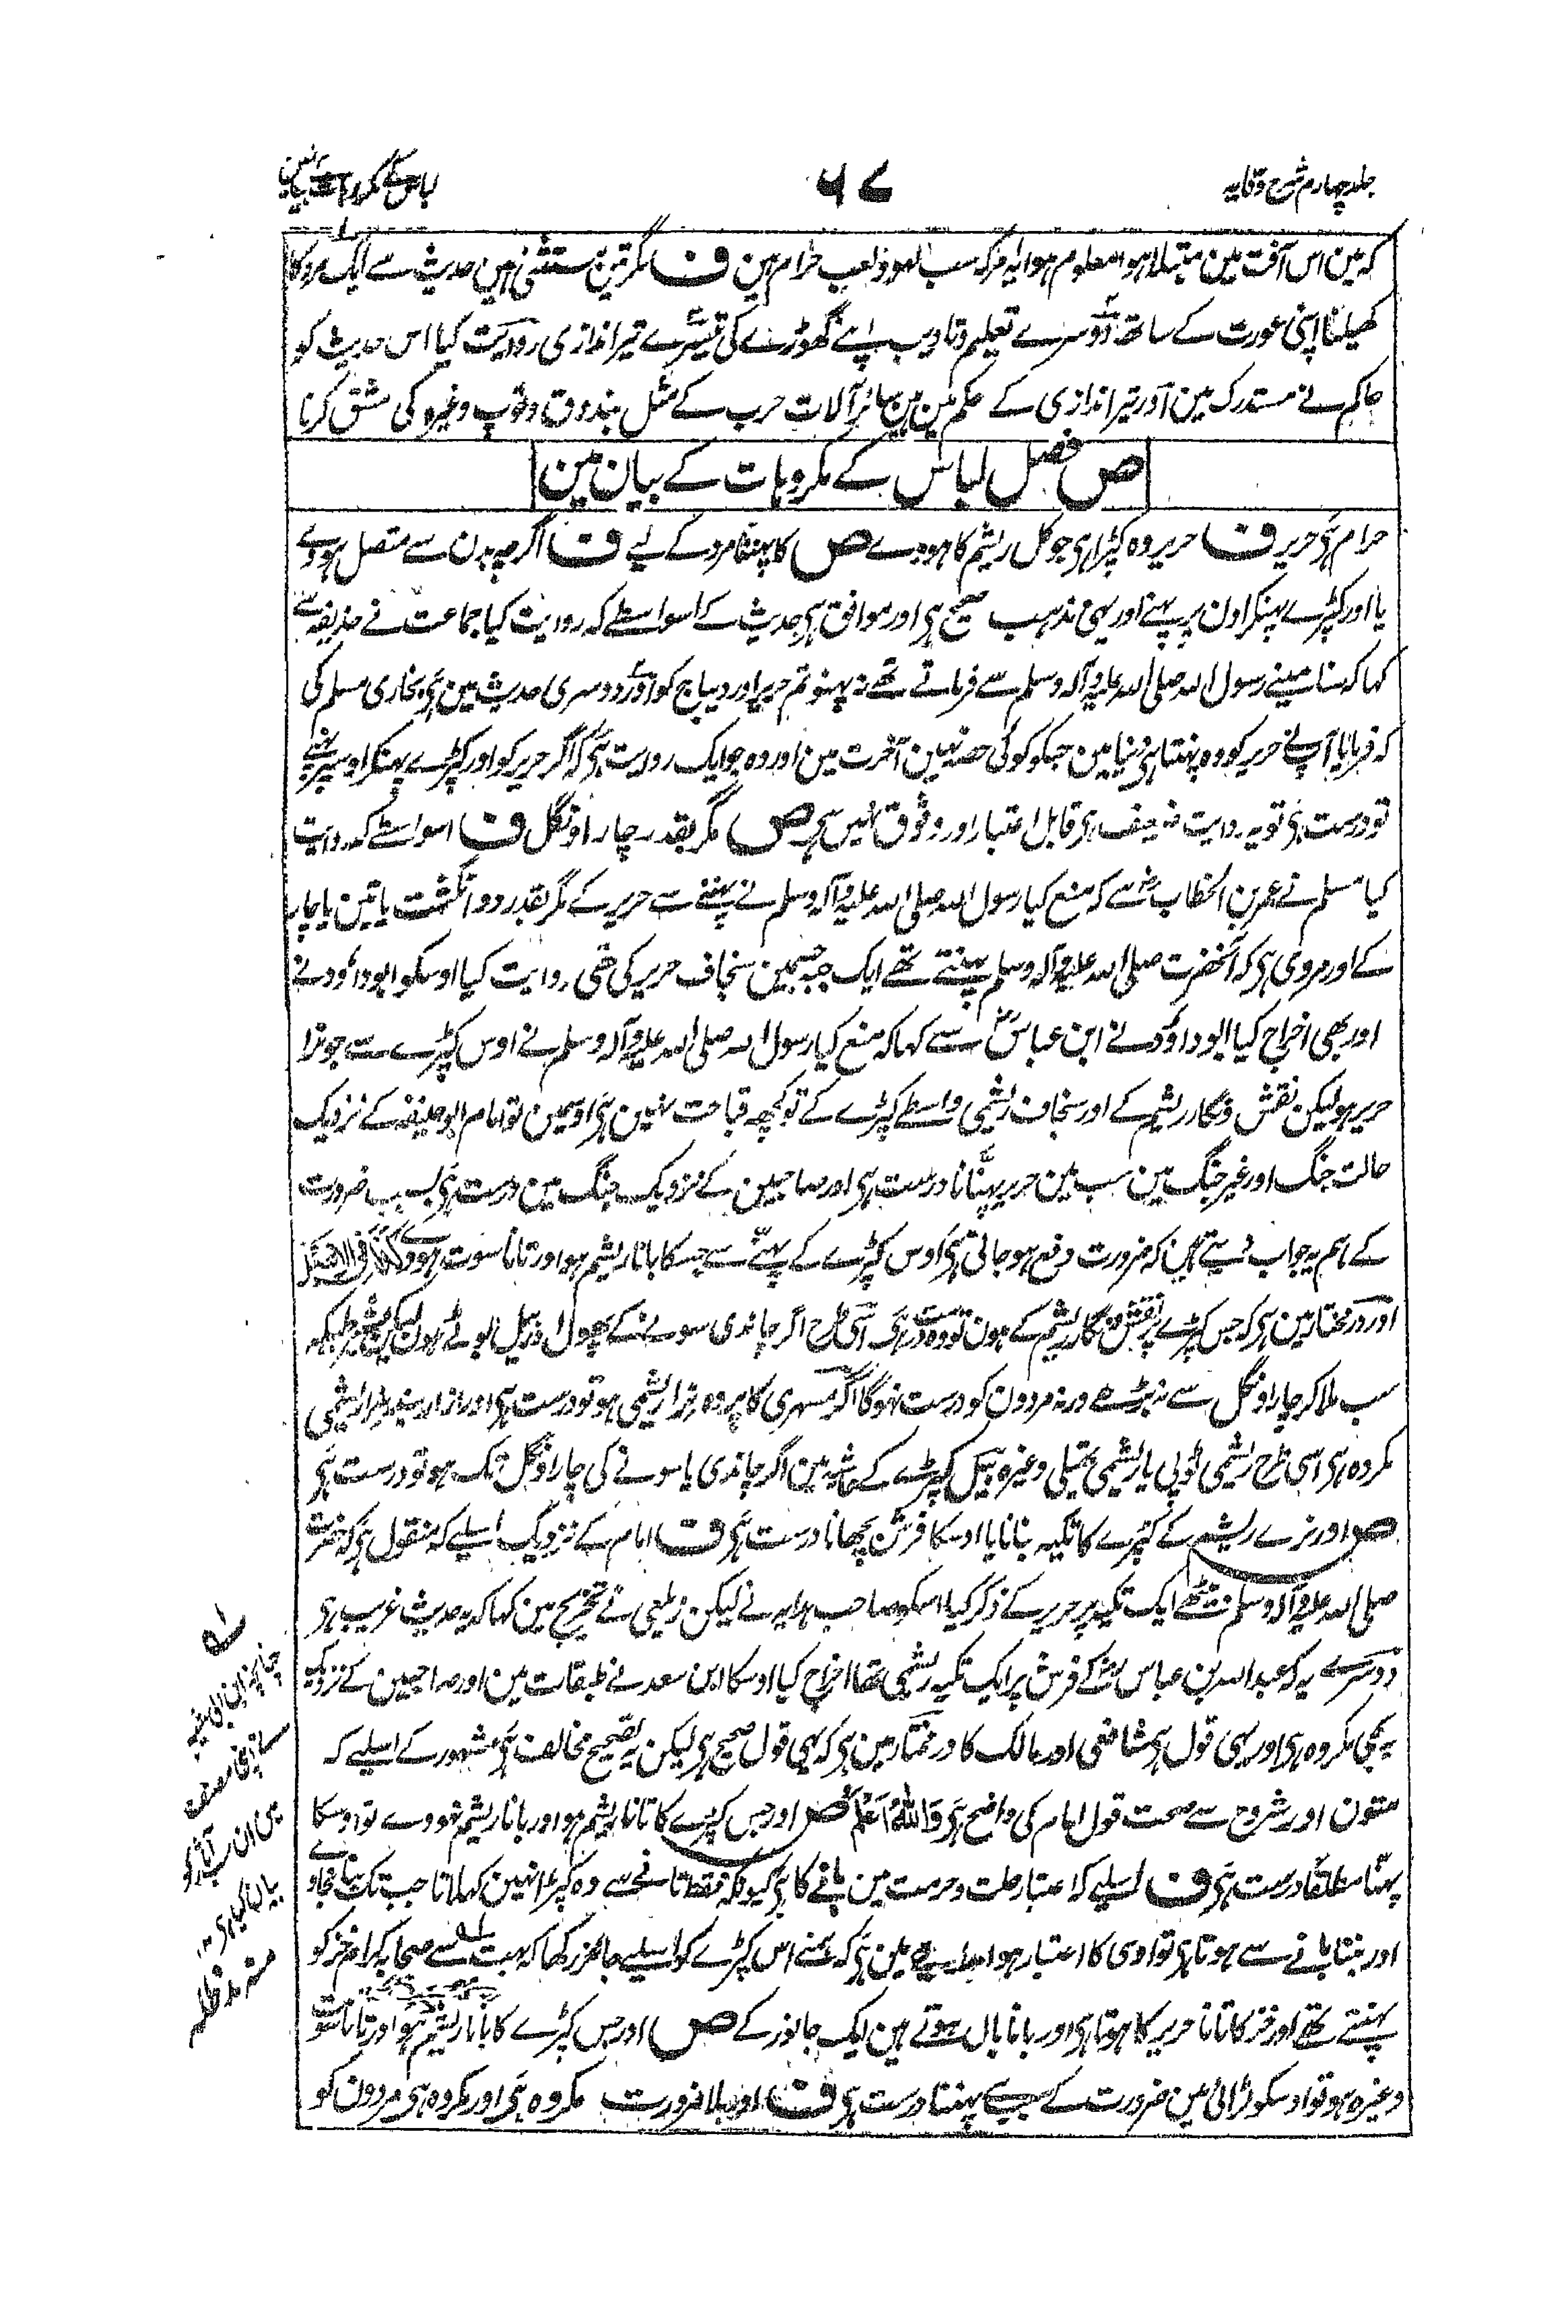 جلد چہارم شرح وقایہ
۶۷
لباس کے مکروہات کے بیان مین
کہ مین اس آفت مین مبتلا ہوا معلوم ہوا یہ مگر کہ سب لہو ولعب حرام ہین ف مگر تین مستثنیٰ ہین حدیث سے ایک مرد کا
کھیلنا اپنی عورت کے ساتھ دوسرے تعلیم وتادیب اپنے گھوڑے کی تیسرے تیر اندازی روایت کیا اس حدیث کو
حاکم نے مستدرک مین اور تیر اندازی کے حکم مین ہین سائر آلات حرب کے مثل بندوق و توپ وغیرہ کی مشق کرنا
ص فصل لباس کے مکروہات کے بیان مین
حرام ہی حریر ف حریر وہ کپڑا ہی جو کل ریشم کا ہووے ص کا پہننا مرد کے لیے ف اگرچہ بدن سے متصل ہووے
یا اور کپڑے پہنکر اون پر پہنے اور یہی مذہب صحیح ہی اور موافق ہی حدیث کے اسواسطے کہ روایت کیا جماعت نے حذیفہ سے
کہا کہ سنا مینے رسول اللہ صلی اللہ علیہ وآلہ وسلم سے فرماتے تھے نہ پہنو تم حریر اور دیباج کو اور دوسری حدیث مین ہی بخاری مسلم کی
کہ فرمایا آپنے حریر کو وہ پہنتا ہی دنیا مین جسکو کوئی حصہ نہین آخرت مین اور وہ جو ایک روایت ہی کہ اگر حریر کو اور کپڑے پہنکر اوسپر پہنے
تو درست ہی تو یہ روایت ضعیف ہی قابل اعتبار اور وثوق نہین ہی ص مگر بقدر چار اونگل ف اسواسطے کہ روایت
کیا مسلم نے عمر بن الخطاب رض سے کہ منع کیا رسول اللہ صلی اللہ علیہ وآلہ وسلم نے پہننے سے حریر کے مگر بقدر دو انگشت یا تین یا چار
کے اور مروی ہی کہ آنحضرت صلی اللہ علیہ وآلہ وسلم پہنتے تھے ایک جبہ جسمین سنجاف حریر کی تھی روایت کیا اوسکو ابو داؤد نے
اور بھی اخراج کیا ابو داؤد نے ابن عباس رض سے کہا کہ منع کیا رسول اللہ صلی اللہ علیہ وآلہ وسلم نے اوس کپڑے سے جو نرا
حریر ہو لیکن نقش ونگار ریشم کے اور سنجاف ریشمی واسطے کپڑے کے تو کچھ قباحت نہین ہی اوسمین تو امام ابو حنیفہ کے نزدیک
حالت جنگ اور غیر جنگ مین سب مین حریر پہننا نا درست ہی اور صاحبین کے نزدیک جنگ مین درست ہی بسبب ضرورت
کے ہم یہ جواب دیتے ہین کہ ضرورت دفع ہو جاتی ہی اوس کپڑے کے پہننے سے جسکا بانا ریشم ہو اور تانا سوت ہووے
اور درمختار مین ہی کہ جس کپڑے پر نقش ونگار ریشم کے ہون تو وہ درست ہی اسی طرح اگر چاندی سونے کے پھول اور بیل بوٹے ہون لیکن بشرطیکہ
سب ملا کر چار اونگل سے نہ بڑھے ورنہ مردون کو درست نہوگا اگر مسہری کا پردہ نرا ریشمی ہو تو درست ہی اور ازار بند نرا ریشمی
مکروہ ہی اسی طرح ریشمی ٹوپی یا ریشمی تھیلی وغیرہ بیل کپڑے کے حاشیہ مین اگر چاندی یا سونے کی چار اونگل تک ہو تو درست ہی
ص اور نرے ریشم کے کپڑے کا تکیہ بنانا یا اوسکا فرش بچھانا درست ہی ف امام کے نزدیک اسلیے کہ منقول ہی کہ حضرت
صلی اللہ علیہ وآلہ وسلم بیٹھے ایک تکیہ پر حریر کے ذکر کیا اسکو صاحب ہدایہ نے لیکن زیلعی نے تخریج مین کہا کہ یہ حدیث غریب ہی
دوسرے یہ کہ عبد اللہ بن عباس رض کے فرش پر ایک تکیہ ریشمی تھا اخراج کیا اوسکا ابن سعد نے طبقات مین اور صاحبین کے نزدیک
یہ بھی مکروہ ہی اور یہی قول ہی شافعی اور مالک کا درمختار مین ہی کہ یہی قول صحیح ہی لیکن یہ تصحیح مخالف ہی مشہور کے اسلیے کہ
متون اور شروح سے صحت قول امام کی واضح ہی وَاللّٰهُ اَعْلَمُ ص اور جس کپڑے کا تانا ریشم ہو اور بانا ریشم نہووے تو اوسکا
پہننا مطلقاً درست ہی ف اسلیے کہ اعتبار حلت وحرمت مین بانے کا ہی کیونکہ فقط تانے سے وہ کپڑا نہین کہلاتا جب تک بنا نجاوے
اور بننا بانے سے ہوتا ہی تو اوسی کا اعتبار ہوا ہدایہ مین ہی کہ ہمنے اس کپڑے کو اسلیے جائز رکھا کہ بہت سے صحابہ کرام خز کو
پہنتے تھے اور خز کا تانا حریر کا ہوتا ہی اور بانا بال ہوتے ہین ایک جانور کے ص اور جس کپڑے کا بانا ریشم ہو اور تانا سوت
وغیرہ ہو تو اوسکو لڑائی مین ضرورت کے لیے پہننا درست ہی ف اور بلا ضرورت مکروہ ہی اور مکروہ ہی مردون کو
لہ
چنانچہ ابن ابی شیبہ
نے اپنی مصنف
مین ان سب آثار کو
بیان کیا ہی ۱۲
منہ مد ظلہ